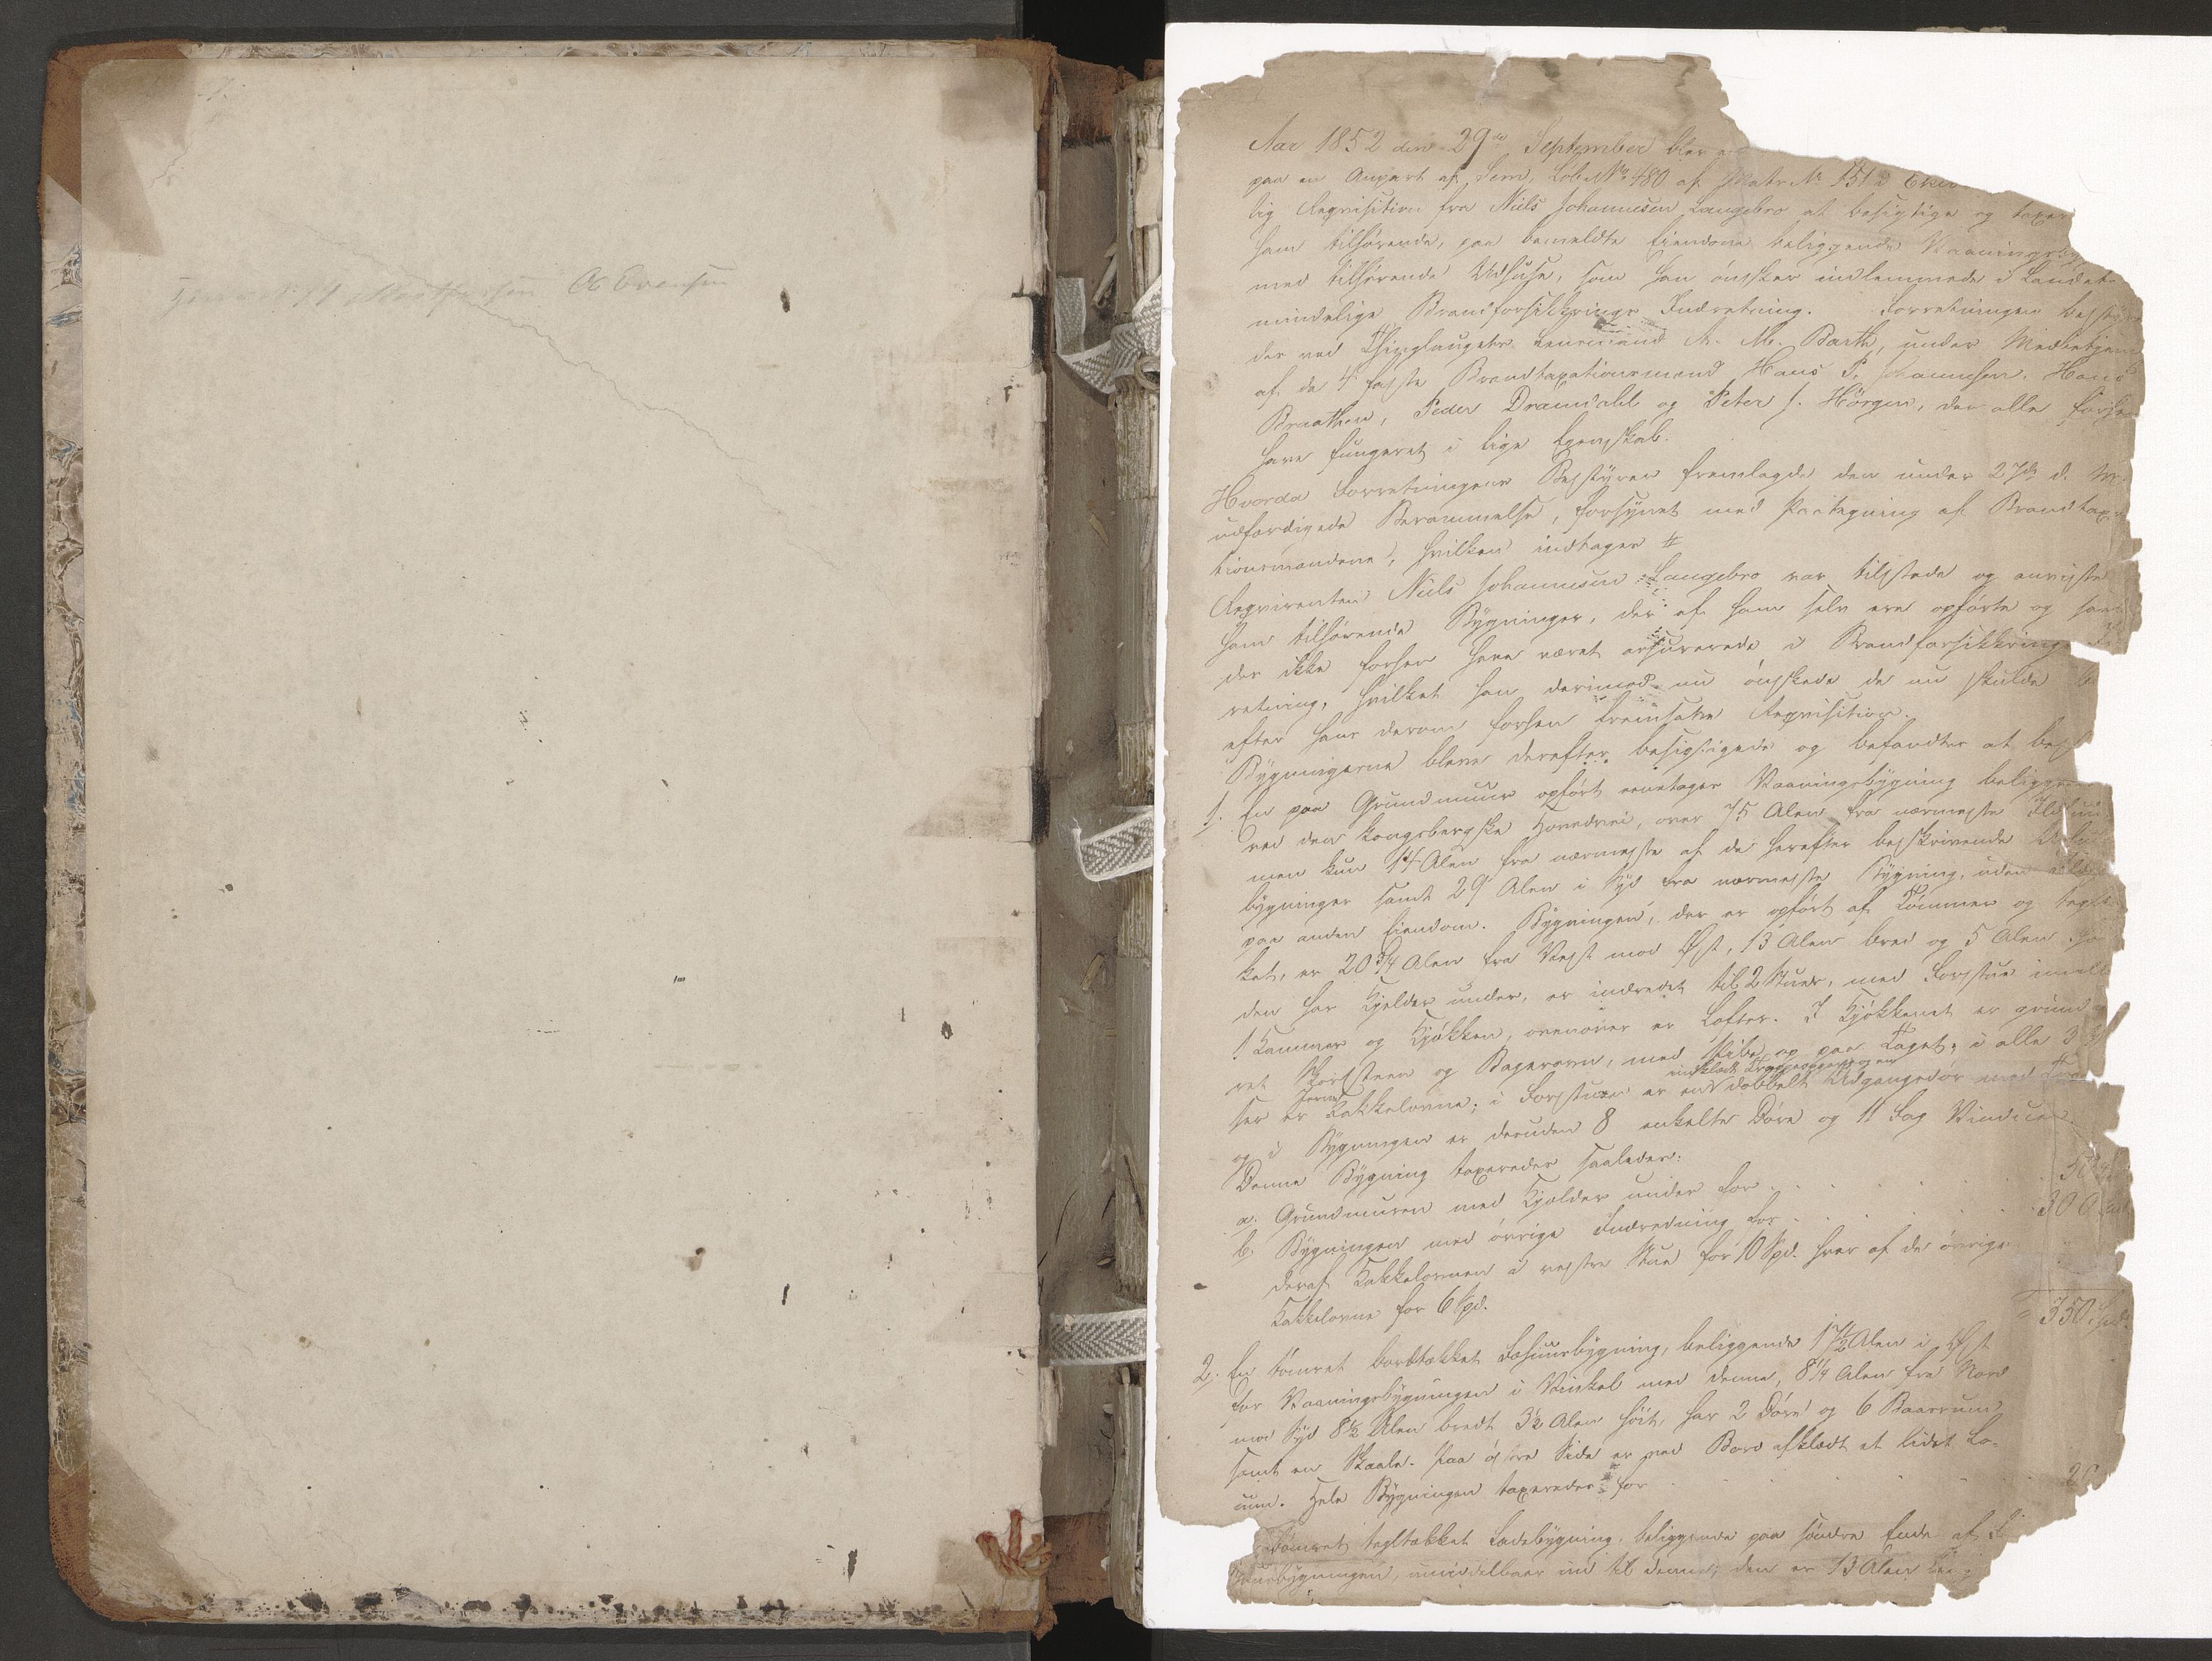 Og Evensen
Aar 1852 den 29de September blev
paa en Anpart af Sem, Løb No 480 af Matr No 151 i Eker
lig Reqvisition fra Niels Johannesen Langebro at besigtige og taxer
ham tilhørende, paa bemeldte Eiendom beliggende Vaaningsby
med tilhørende Udhuse, som han ønsker indlemmede i Landets
mindelige Brandforsikkrings Indretning. Forretningen besty
des ved Thinglaugets Lensmand A. M. Barth, under Medbetjen
af de 4 faste Brandtaxationsmænd Hans P. Hans
Braathen, Peder Dramdahl og Peter J. Hörgen, der alle forhen
have fungeret i lige Egenskab.
Hvorda Forretningens Bestyrer fremlagde den under 27de d. M.
udfærdigede Berammelse, forsynet med Paategning af Brandtaxa
tionsmændene, hvilken indtages #
Reqvirenten Niels Johannesen Langebro var tilstede og anviste
ham tilhørende Bygninger, der af ham selv ere opførte og
der ikke forhen have været assurerede i Brandforsikkrings
retning, hvilket han derimod nu ønskede de nu skulde
efter hans derom forhen fremsatte Reqvisition.
Bygningerne bleve derefter besigtigede og befandtes at bes
1. En paa Grundmuur opført eenetages Vaaningsbygning beliggen
ved den kongsbergske Hovedvei, over 75 Alen fra nærmeste Ildsted
men kun 14 Alen fra nærmeste af de herefter beskrivende Udhuus
bygninger samt 29 Alen i Syd fra nærmeste Bygning, uden Ildst
paa anden Eiendom. Bygningen, der er opført af Tømmer og tegltæk
ket, er 20 3/4 Alen fra Vest mod Øst, 13 Alen bred og 5 Alen hø
den har Kjelder under, er indredet til 2 Stuer, med Forstue imell
1 Kammer og Kjøkken, ovenover er Lofter. I Kjøkkenet er grund
ret Skorsteen og Bagerovn, med Pibe op paa Taget, i alle 3
indklædt Trappeopgang og en
ser er Jern Kakkelovne; i Forstuen er en dobbelt Udgangsdør med
og i Bygningen er desuden 8 enkelte Døre og 11 Fag Vinduer
Denne Bygning taxeredes saaledes:
a. Grundmuren med Kjelder under for . . . . . 50
b. Bygningen med øvrige Indredning for . . . . . 300
deraf Kakkelovnen i vestre Stue for 10 Spd. hver af de øvrige
Kakkelovne for 6 Spd.
350 Spd.
2. En tømret bordtækket Fæhuusbygning, beliggende 17 1/2 Alen i Øst
for Vaaningsbygningen i Vinkel med denne, 8 1/4 Alen fra Nord
mod Syd 8 1/2 Alen bredt 3 1/2 Alen høit, har 2 Døre og 6 Baasrum
samt en Skaale. Paa østre Side er ved Bord afklædt et lidet Lo-
cum. Hele Bygningen taxeredes for
tømret tegltækket Ladebygning, beliggende paa søndre Ende af F
huusbygningen, umiddelbar ind til denne; den er 13 Alen